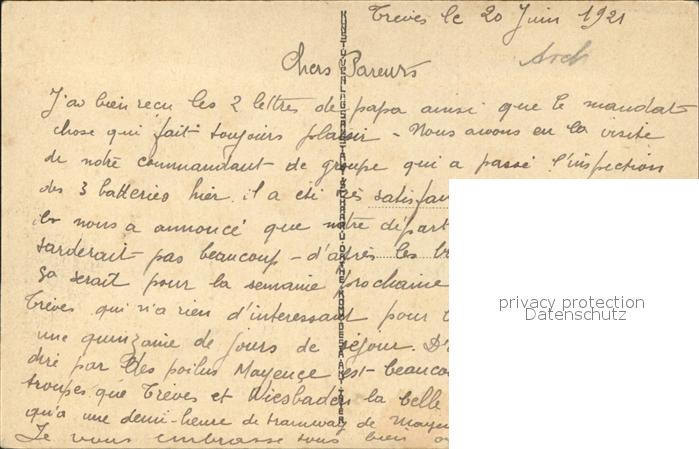 Trèves le 20 Juin 1921
Chers Parents
J'ai bien reçu les 2 lettres de papa ainsi que le mandat
chose qui fait toujours plaisir - Nous avons eu la visite
de notre commandant de groupe qui a passé l'inspection
des 3 batteries hier. il a été très satisfai
il nous a annoncé que notre départ
tarderait pas beaucoup - d'après les br
ça serait pour la semaine prochaine
Trèves qui n'a rien d'interessant pour
une quinzaine de jours de séjour. D'
dire par des poilus Mayence est beaucou
troupes que Trèves et Wiesbaden la belle
qu'a une demi-heure de tramway de Mayen
Je vous embrasse tous bien
privacy protection
Datenschutz